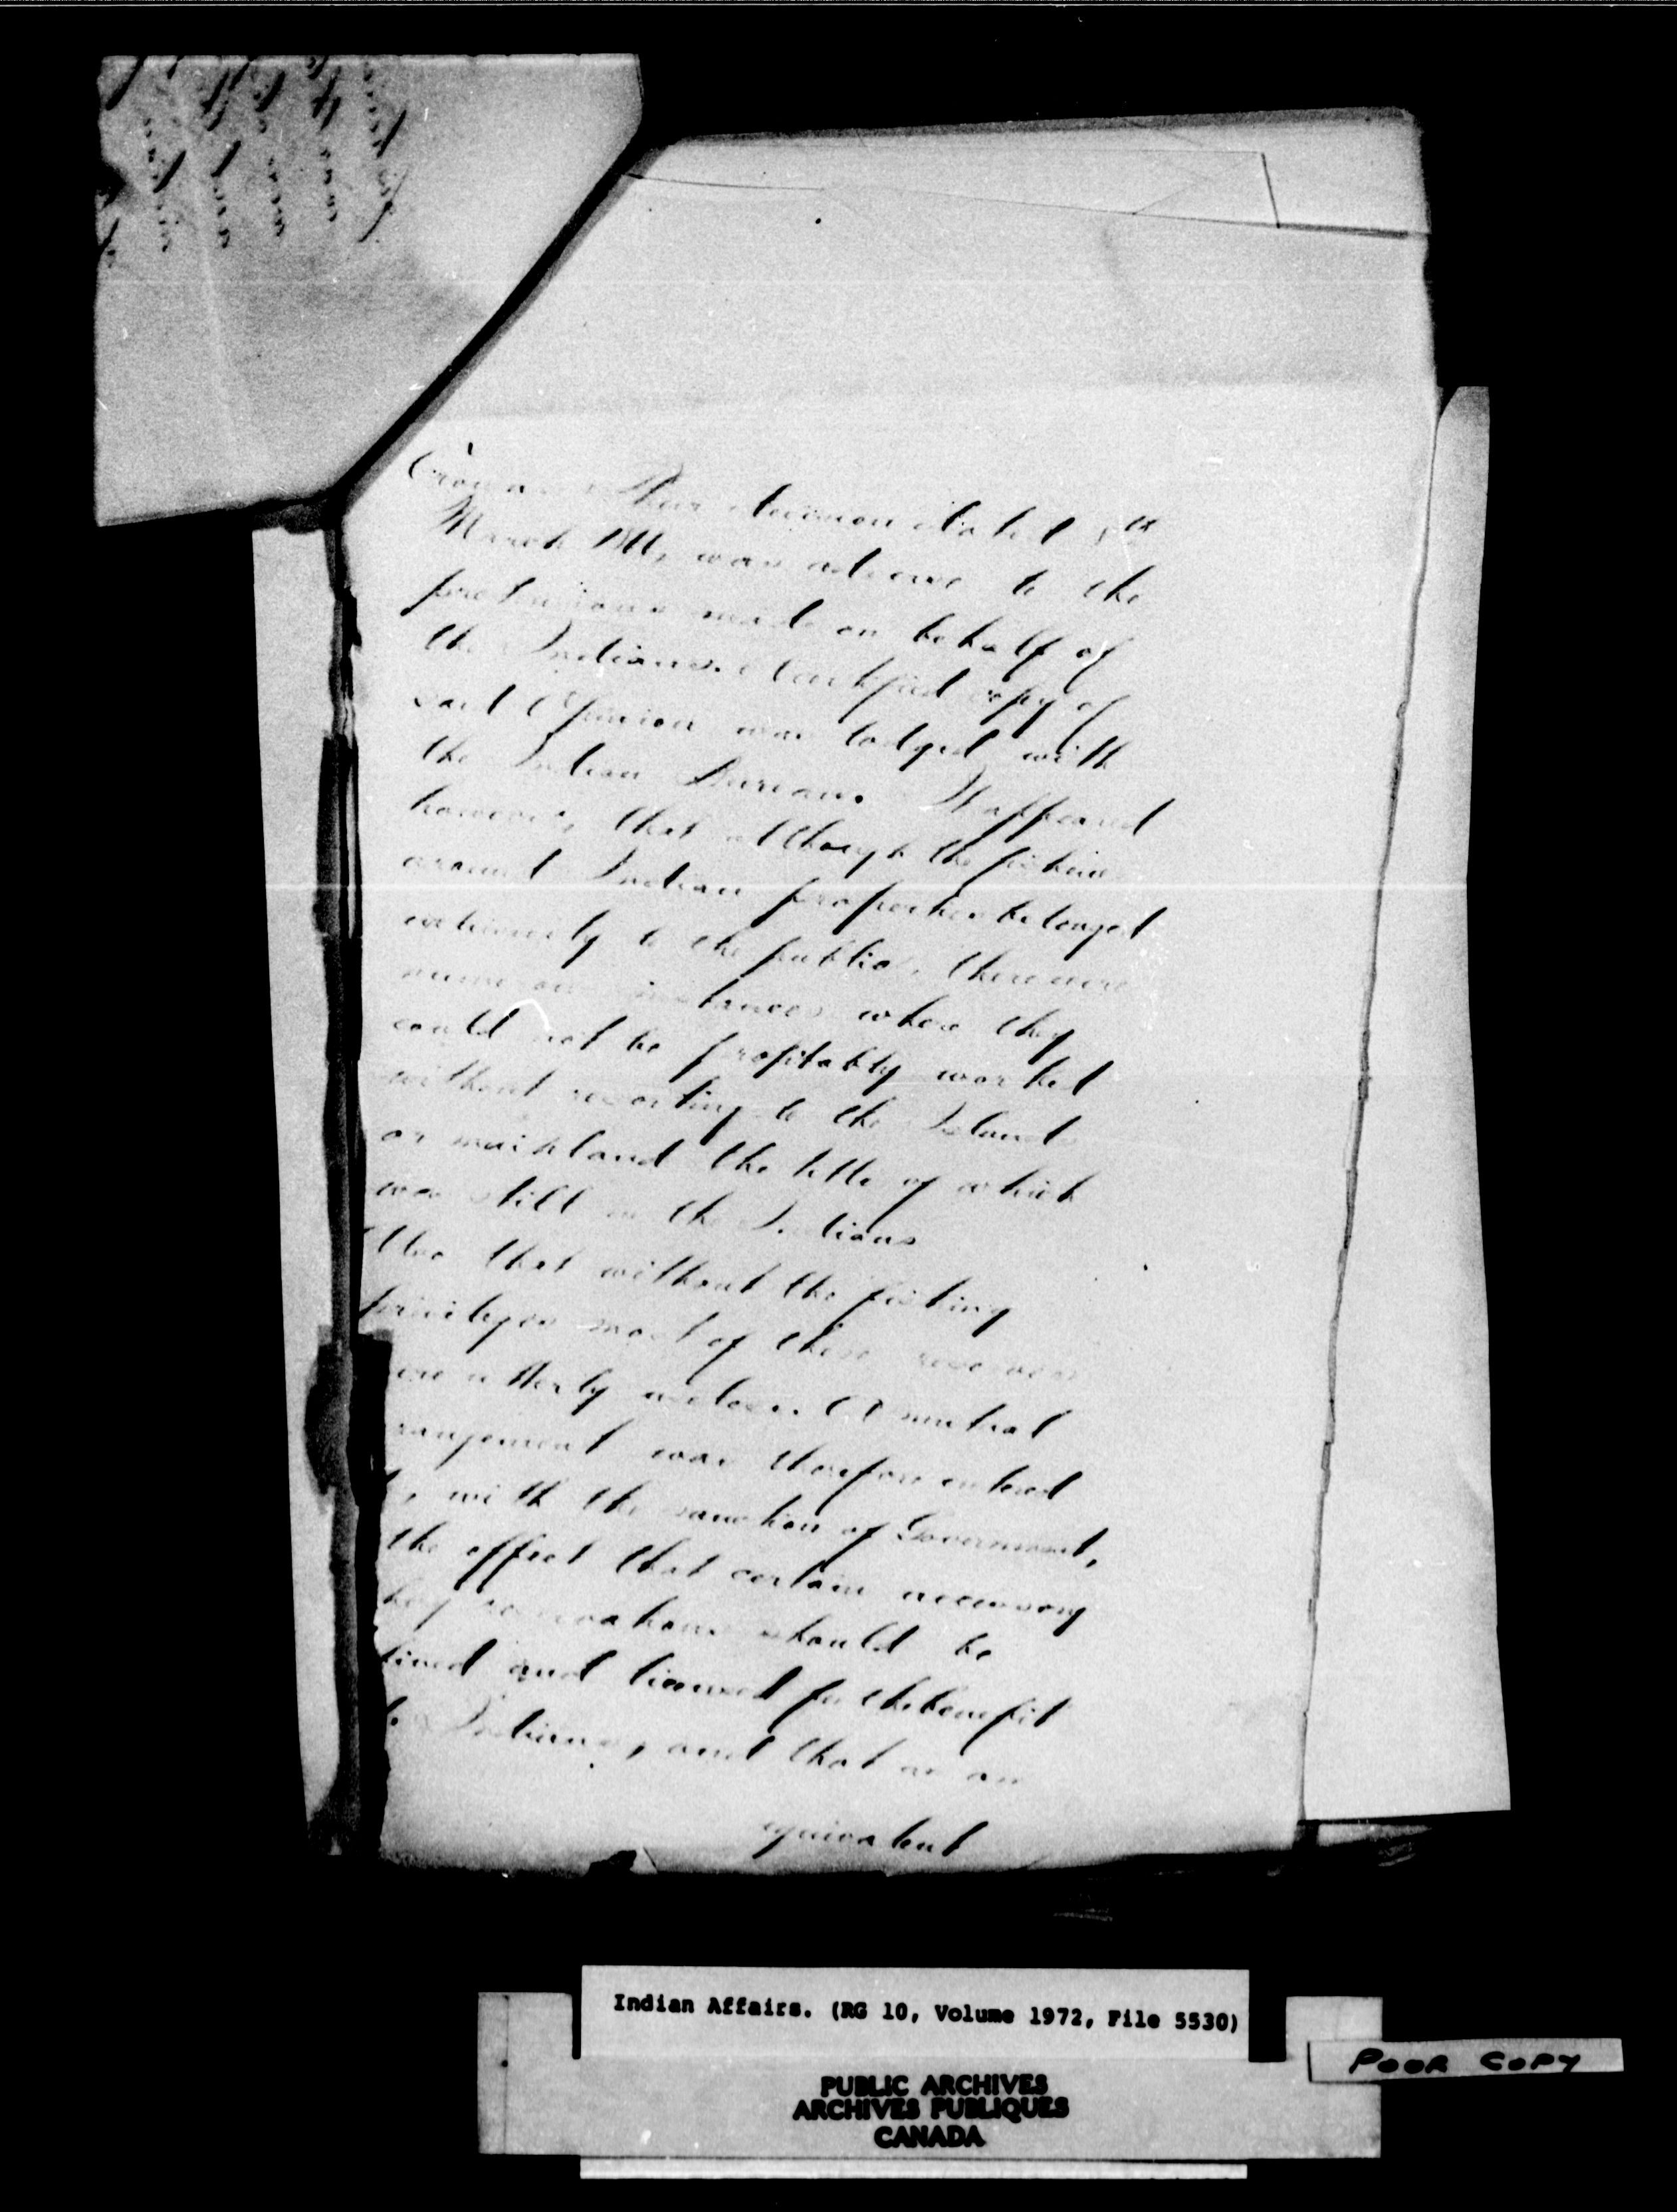 Crown. Their decision dated 8th
March 1866, was adverse to the
pretensions made on behalf of
the Indians. A certified copy of
said Opinion was lodged with
the Indian Bureau. It appeared
however, that although the fisheries
around Indian properties belonged
ordinarily to the public, there were
numerous instances where they
could not be profitably worked
without resorting to the Islands
or mainland the title of which
was still in the Indians
Also that without the fishing
privileges most of these reserves
were utterly useless. A mutual
rangement was therefore entered
with the sanction of Government,
the effect that certain necessary
reservations should be
and licensed for the benefit
Indians, and that as an
equivalent
Indian Affairs. (RG 10, Volume 1972, File 5530)
PUBLIC ARCHIVES
ARCHIVES PUBLIQUES
CANADA
POOR COPY